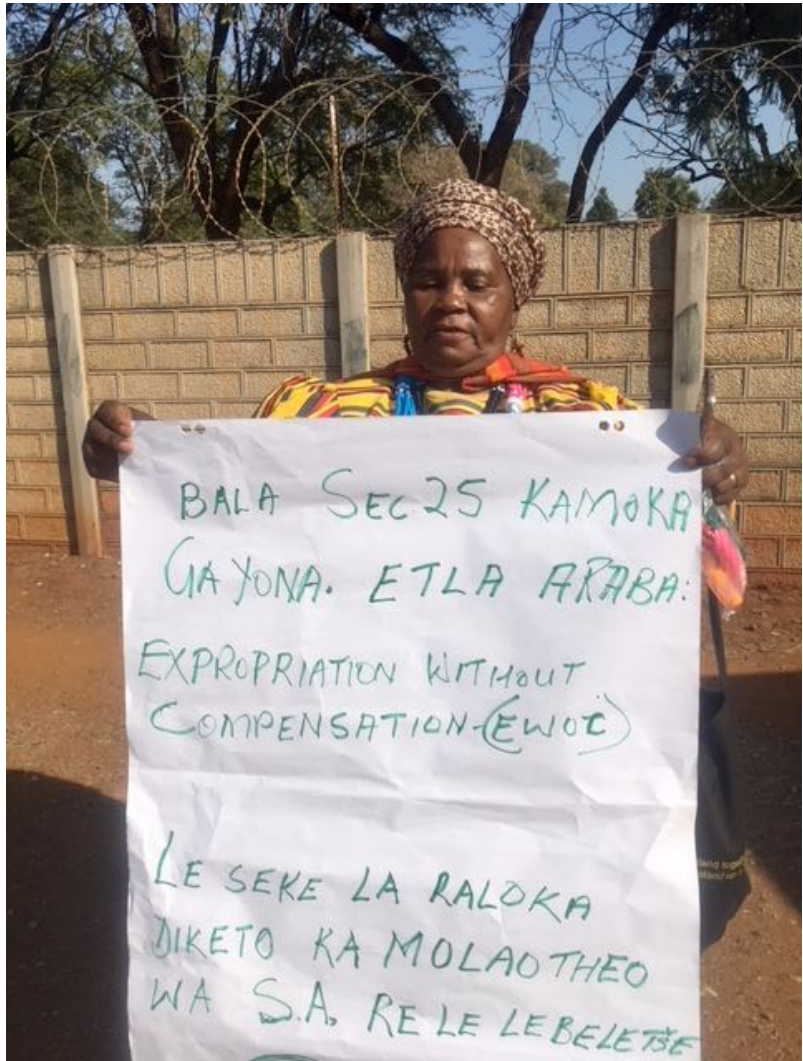 BALA SEC 25 KAMOKA
GA YONA. ETLA ARABA:
EXPROPRIATION WITHOUT
COMPENSATION-(EWOC)
LE SEKE LA RALOKA
DIKETO KA MOLAOTHEO
WA S.A. RE LE LEBELETŠE